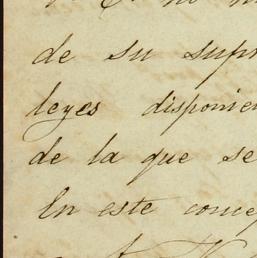 de su supr
leyes disponien
de la que se
En este conce